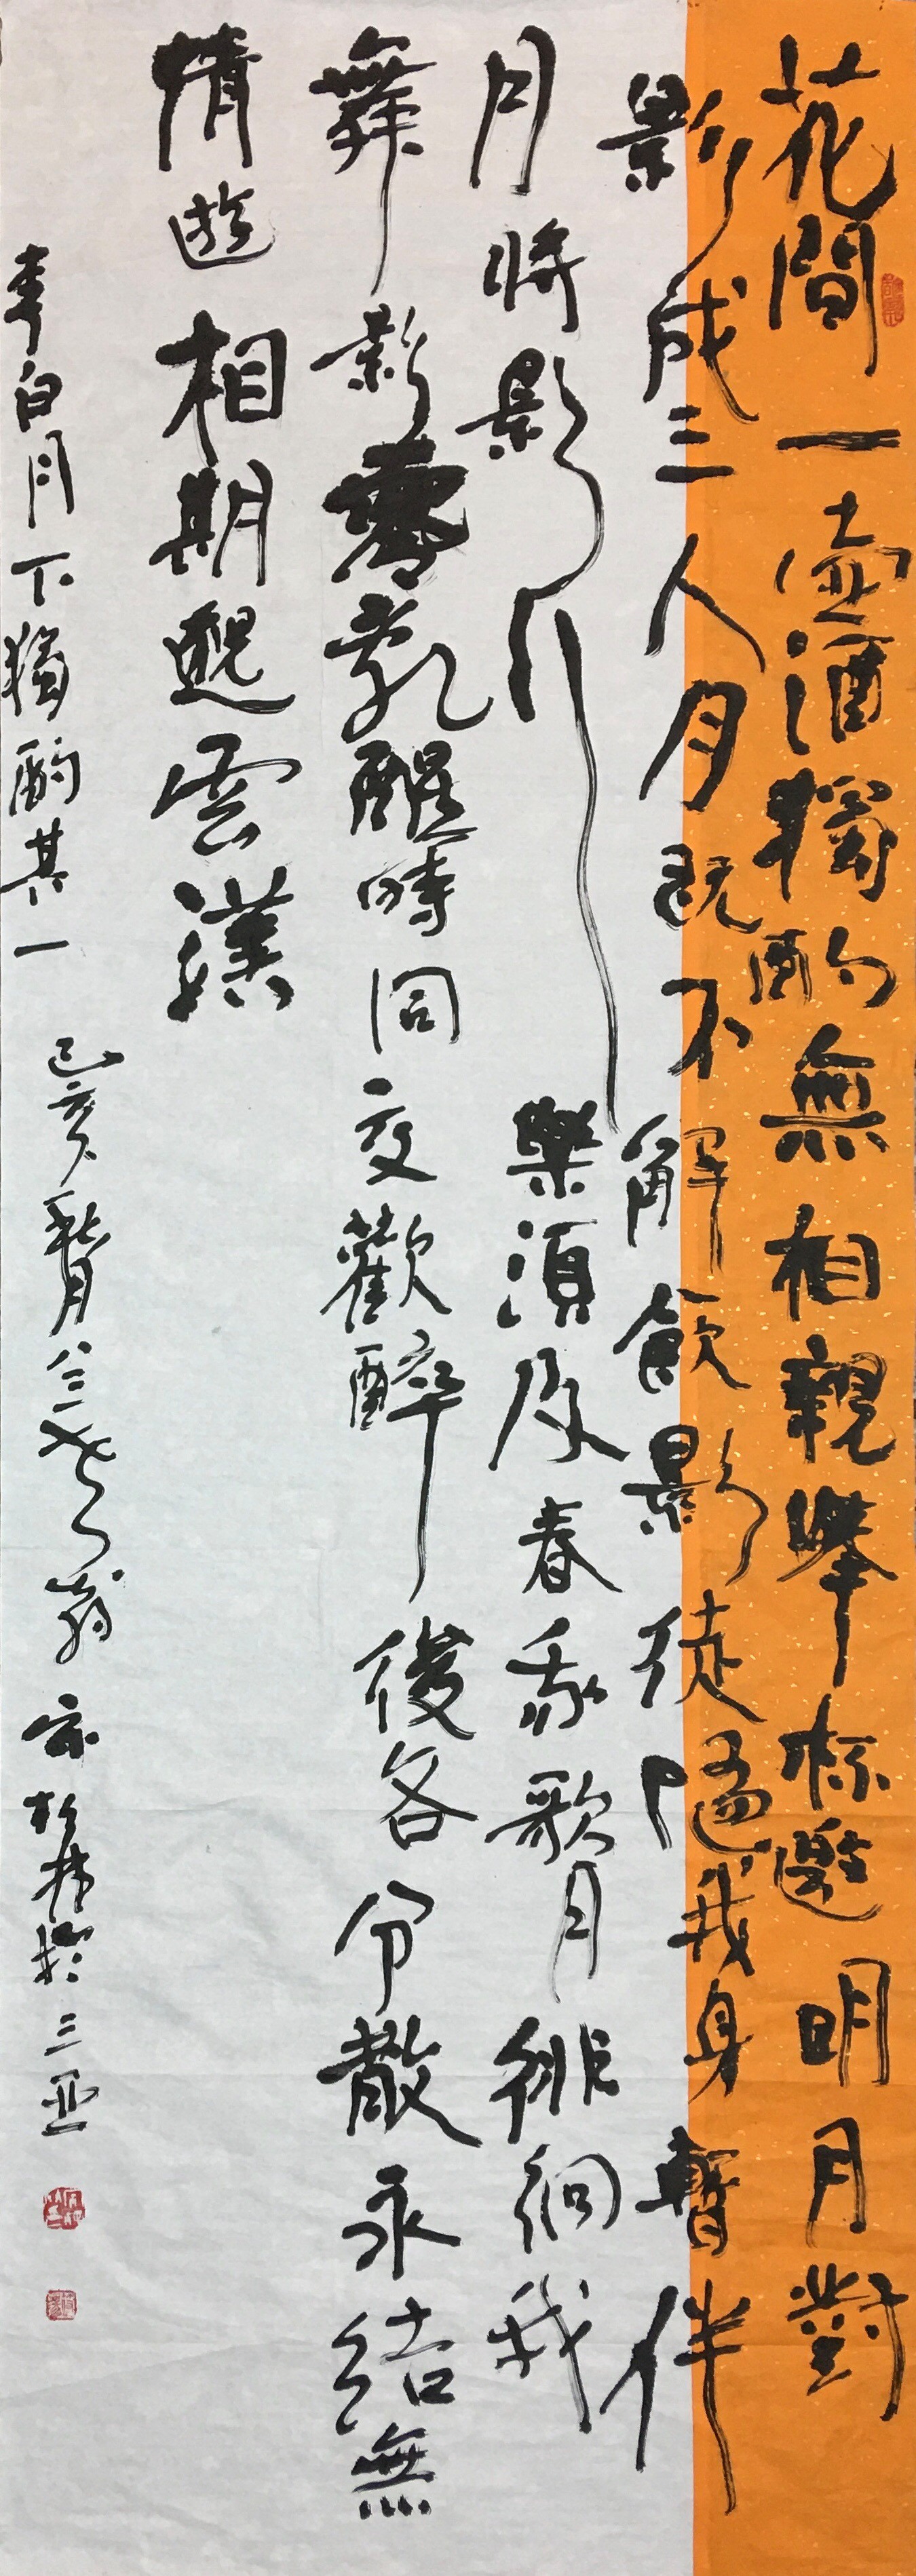 花間一壺酒獨酌無相親舉杯邀明月對
影成三人月既不解飲影徒隨我身暫伴
月將影行樂須及春我歌月徘徊我
舞影零亂醒時同交歡醉後各分散永結無
情遊相期邈雲漢
李白月下獨酌其一
己亥 於三亚